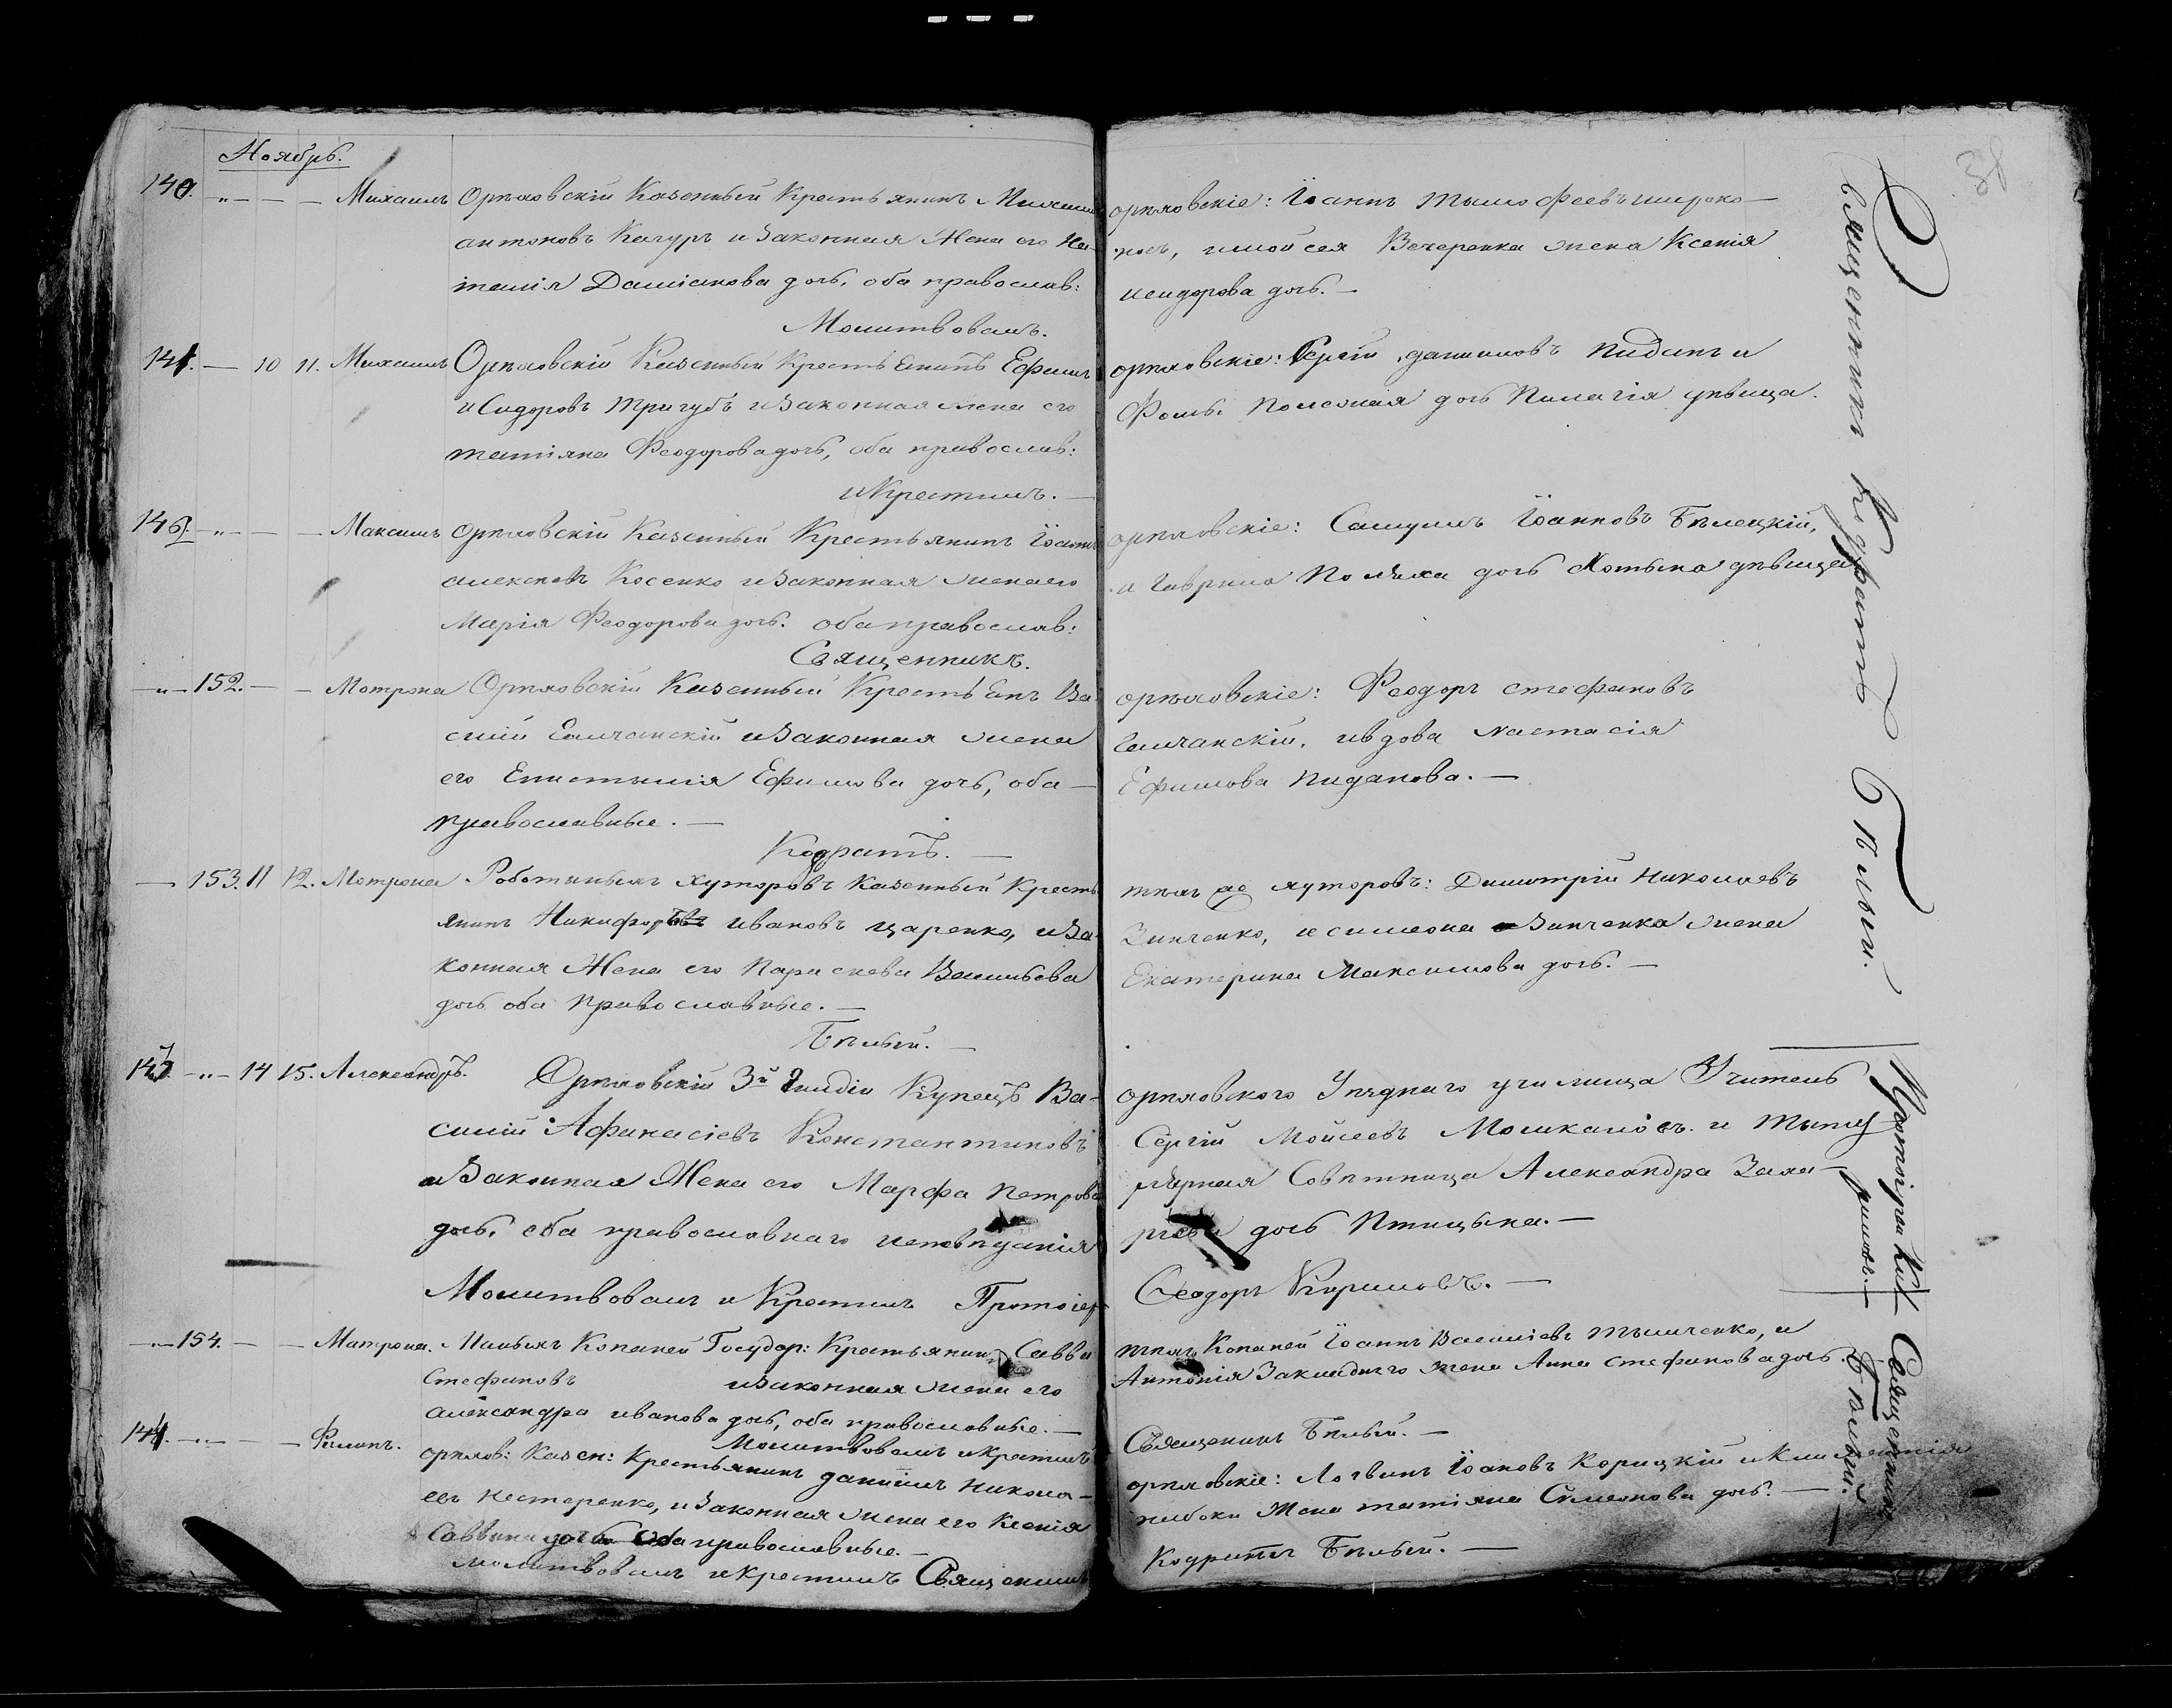 Ноябрь.
140. Михаилъ Орѣховскій Казенный Крестьянинъ
антоновъ Качуръ и Законная Жена его
Даміанова дочь, оба православ:
Молитвовалъ.
141. — 10 11. Михаилъ Орѣховскій Казенный Ефимъ
и Сидоровъ Тригубъ и Законная жена его
татіяна Феодорова дочь, оба православ:
и Крестилъ. —
Максимъ Орѣховскій Казенный Крестьянинъ Іоаннъ
Косенко и Законная жена его
Марія Феодорова дочь. оба православ:
Священникъ.
152. Мотрона Орѣховскій Казенный Ва-
силій и Законная жена
его Епистимія Ефимова дочь, оба —
православные. —
Кодратъ. —
153. 11 12. Мотрона хуторовъ Казенный Кресть
янинъ Никифоръ ивановъ царенко, и За-
конная Жена его Параскева Васильева
дочь оба Православные. —
Бѣлый. —
14 15. Александръ. Орѣховскій 3й Гилдіи Купецъ Ва-
силій Афанасіевъ Константиновъ
и Законная Жена его Марфа петрова
дочь, оба православнаго исповѣданія
Молитвовалъ и Крестилъ Протоіер-
154. Матрона. Копаней Государ: Крестьянинъ Савва
Стефановъ и законная жена его
александра иванова дочь, оба православные. —
Молитвовалъ и крестилъ
Филипъ. орѣхов: Казен: Крестьянинъ даниилъ никола-
евъ нестеренко, и Законная жена его Ксенія
Саввина дочь оба православные. —
молитвовалъ и крестилъ Священникъ
38
орѣховскіе: Іоаннъ широко-
носъ, Вечеренка жена Ксенія
дочь. —
орѣховскіе: Сергій даниловъ и
Фомы дочь Пилагія дѣвица.
орѣховскіе: Самуилъ Іоанновъ Бѣлецкій,
и Гаврила дочь дѣвица
орѣховскіе: Феодоръ стефановъ
и вдова настасія
Ефимова пиданова. —
тѣхъ хуторовъ: Димитрій Николаевъ
Зинченко, и симеона Зинченка жена
Екатерина Максимова дочь. —
орѣховского Уѣзднаго училища Учитель
Сергій Мойсеевъ и Титу-
лярная Совѣтница Александра Заха-
рьева дочь Птицына. —
Феодоръ Кириловъ. —
тѣхъ Копаней Іоаннъ Василіевъ и
Антонія жена Анна стефанова дочь.
Священникъ Бѣлый. —
орѣховскіе: Логвинъ Іоановъ Корицкій
Жена татіяна Симеонова дочь. —
Кодратъ Бѣлый. —
Священникъ Кодратъ Бѣлый.
Протоіерей Ки-
риловъ. —
Священникъ
Бѣлый. —